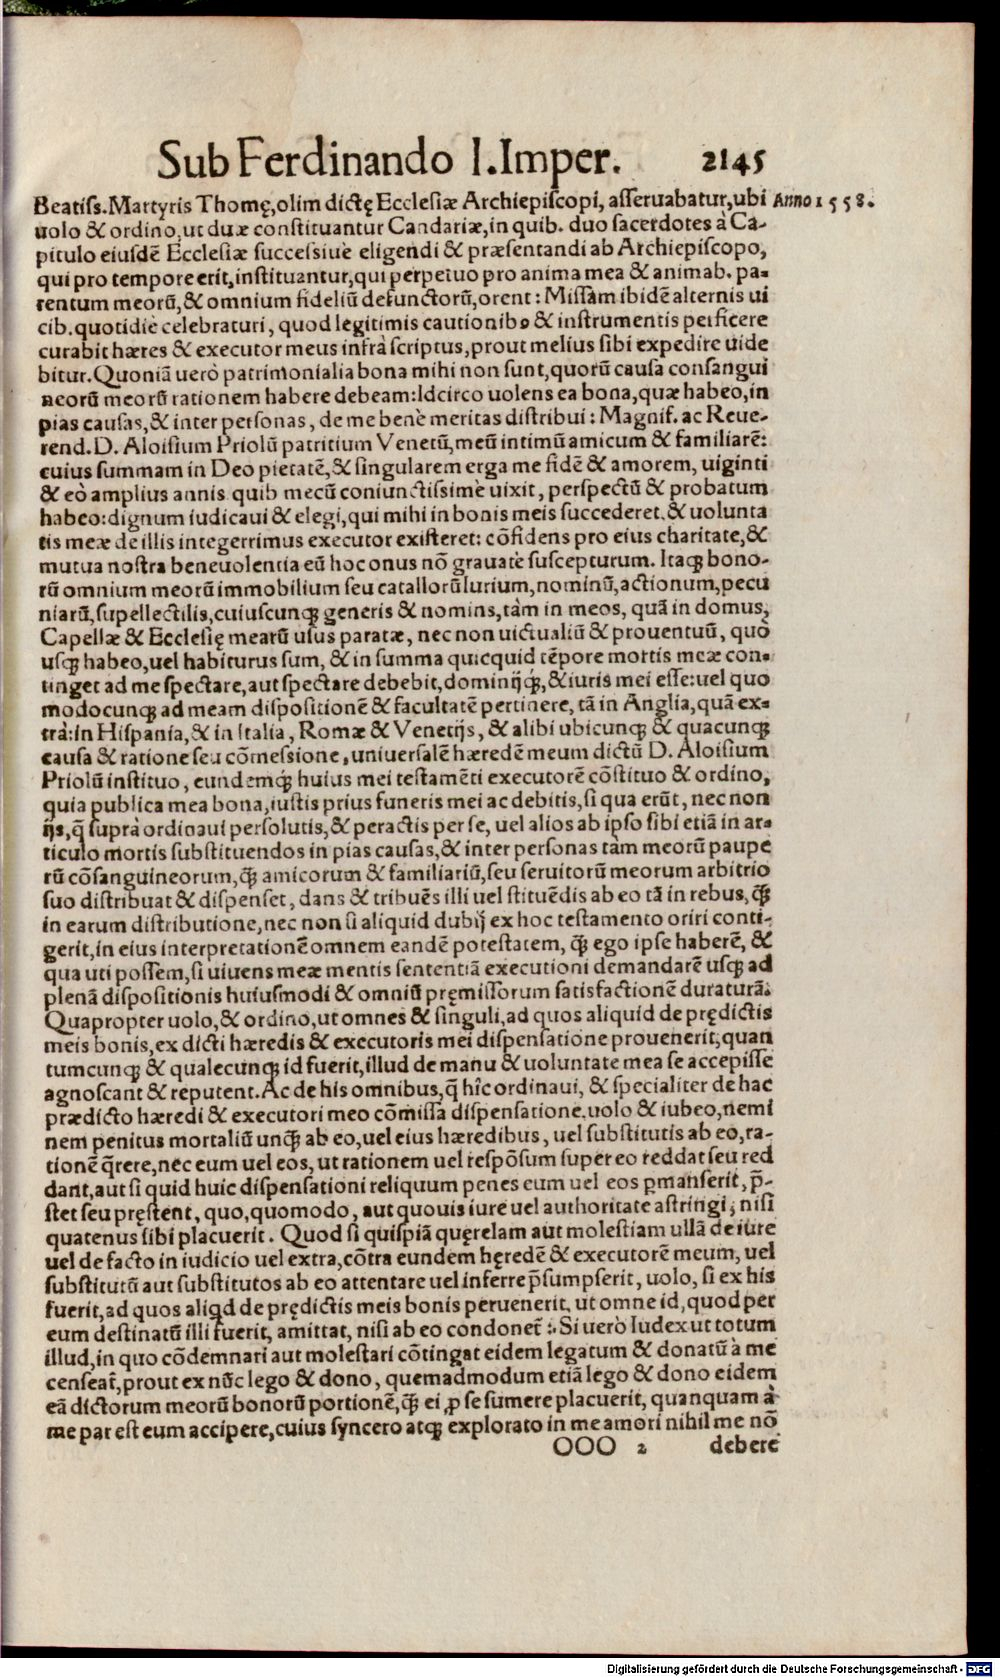 Sub Ferdinando I. Imper. 2145
Beatiss. Martyris Thomę, olim dictę Ecclesiæ Archiepiscopi, asseruabatur, ubi Anno 1558.
uolo & ordino, ut duæ constituantur Candariæ, in quib. duo sacerdotes à Ca-
pitulo eiusdē Ecclesiæ successiuè eligendi & præsentandi ab Archiepiscopo,
qui pro tempore erit, instituantur, qui perpetuo pro anima mea & animab. pa-
rentum meorū, & omnium fideliū defunctorū, orent: Missam ibidē alternis ui
cib. quotidiè celebraturi, quod legitimis cautionibꝰ & instrumentis perficere
curabit hæres & executor meus infrà scriptus, prout melius sibi expedire uide
bitur. Quoniā uerò patrimonialia bona mihi non sunt, quorū causa consangui
neorū meorū rationem habere debeam: Idcirco uolens ea bona, quæ habeo, in
pias causas, & inter personas, de me benè meritas distribui: Magnif. ac Reue-
rend. D. Aloisium Priolū patritium Venetū, meū intimū amicum & familiarē:
cuius summam in Deo pietatē, & singularem erga me fidē & amorem, uiginti
& eò amplius annis quib mecū coniunctissimè uixit, perspectū & probatum
habeo: dignum iudicaui & elegi, qui mihi in bonis meis succederet, & uolunta
tis meæ de illis integerrimus executor existeret: cōfidens pro eius charitate, &
mutua nostra beneuolentia eū hoc onus nō grauatè suscepturum. Itaqꝫ bono-
rū omnium meorū immobilium seu catallorū Iurium, nominū, actionum, pecu
niarū, supellectilis, cuiuscunqꝫ generis & nomins, tàm in meos, quā in domus,
Capellæ & Ecclesię mearū usus paratæ, nec non uictualiū & prouentuū, quò
usqꝫ habeo, uel habiturus sum, & in summa quicquid tēpore mortis meæ con-
tinget ad me spectare, aut spectare debebit, dominijqꝫ, & iuris mei esse: uel quo
modocunqꝫ ad meam dispositionē & facultatē pertinere, tā in Anglia, quā ex-
trà: in Hispania, & in Italia, Romæ & Venetijs, & alibi ubicunqꝫ & quacunqꝫ
causa & ratione seu cōmessione, uniuersalē hæredē meum dictū D. Aloisium
Priolū instituo, eundemqꝫ huius mei testamēti executorē cōstituo & ordino,
quia publica mea bona, iustis prius funeris mei ac debitis, si qua erūt, nec non
ijs, q̄ suprà ordinaui persolutis, & peractis per se, uel alios ab ipso sibi etiā in ar-
ticulo mortis substituendos in pias causas, & inter personas tàm meorū paupe
rū cōsanguineorum, q̄ꝫ amicorum & familiariū, seu seruitorū meorum arbitrio
suo distribuat & dispenset, dans & tribuēs illi uel stituēdis ab eo tā in rebus, q̄ꝫ
in earum distributione, nec non si aliquid dubij ex hoc testamento oriri conti-
gerit, in eius interpretationē omnem eandē potestatem, q̄ꝫ ego ipse haberē, &
qua uti possem, si uiuens meæ mentis sententiā executioni demandarē usqꝫ ad
plenā dispositionis huiusmodi & omniū pręmissorum satisfactionē duraturā:
Quapropter uolo, & ordino, ut omnes & singuli, ad quos aliquid de prędictis
meis bonis, ex dicti hæredis & executoris mei dispensatione prouenerit, quan
tumcunqꝫ & qualecunqꝫ id fuerit, illud de manu & uoluntate mea se accepisse
agnoscant & reputent. Ac de his omnibus, q̄ hîc ordinaui, & specialiter de hac
prædicto hæredi & executori meo cōmissa dispensatione, uolo & iubeo, nemi
nem penitus mortaliū unq̄ꝫ ab eo, uel eius hæredibus, uel substitutis ab eo, ra-
tionē q̄rere, nec eum uel eos, ut rationem uel respōsum super eo reddat seu red
dant, aut si quid huic dispensationi reliquum penes eum uel eos ꝑmanserit, p̄-
stet seu pręstent, quo, quomodo, aut quouis iure uel authoritate astringi, nisi
quatenus sibi placuerit. Quod si quispiā quęrelam aut molestiam ullā de iure
uel de facto in iudicio uel extra, cōtra eundem hęredē & executorē meum, uel
substitutū aut substitutos ab eo attentare uel inferre p̄sumpserit, uolo, si ex his
fuerit, ad quos aliqd de prędictis meis bonis peruenerit, ut omne id, quod per
eum destinatū illi fuerit, amittat, nisi ab eo condonet̄: Si uerò Iudex ut totum
illud, in quo cōdemnari aut molestari cōtingat eidem legatum & donatū à me
censeat̄, prout ex nūc lego & dono, quemadmodum etiā lego & dono eidem
eā dictorum meorū bonorū portionē, q̄ꝫ ei ꝓ se sumere placuerit, quanquam à
me par est eum accipere, cuius syncero atqꝫ explorato in me amori nihil me nō
OOO 2 debere
Digitalisierung gefördert durch die Deutsche Forschungsgemeinschaft - DFG